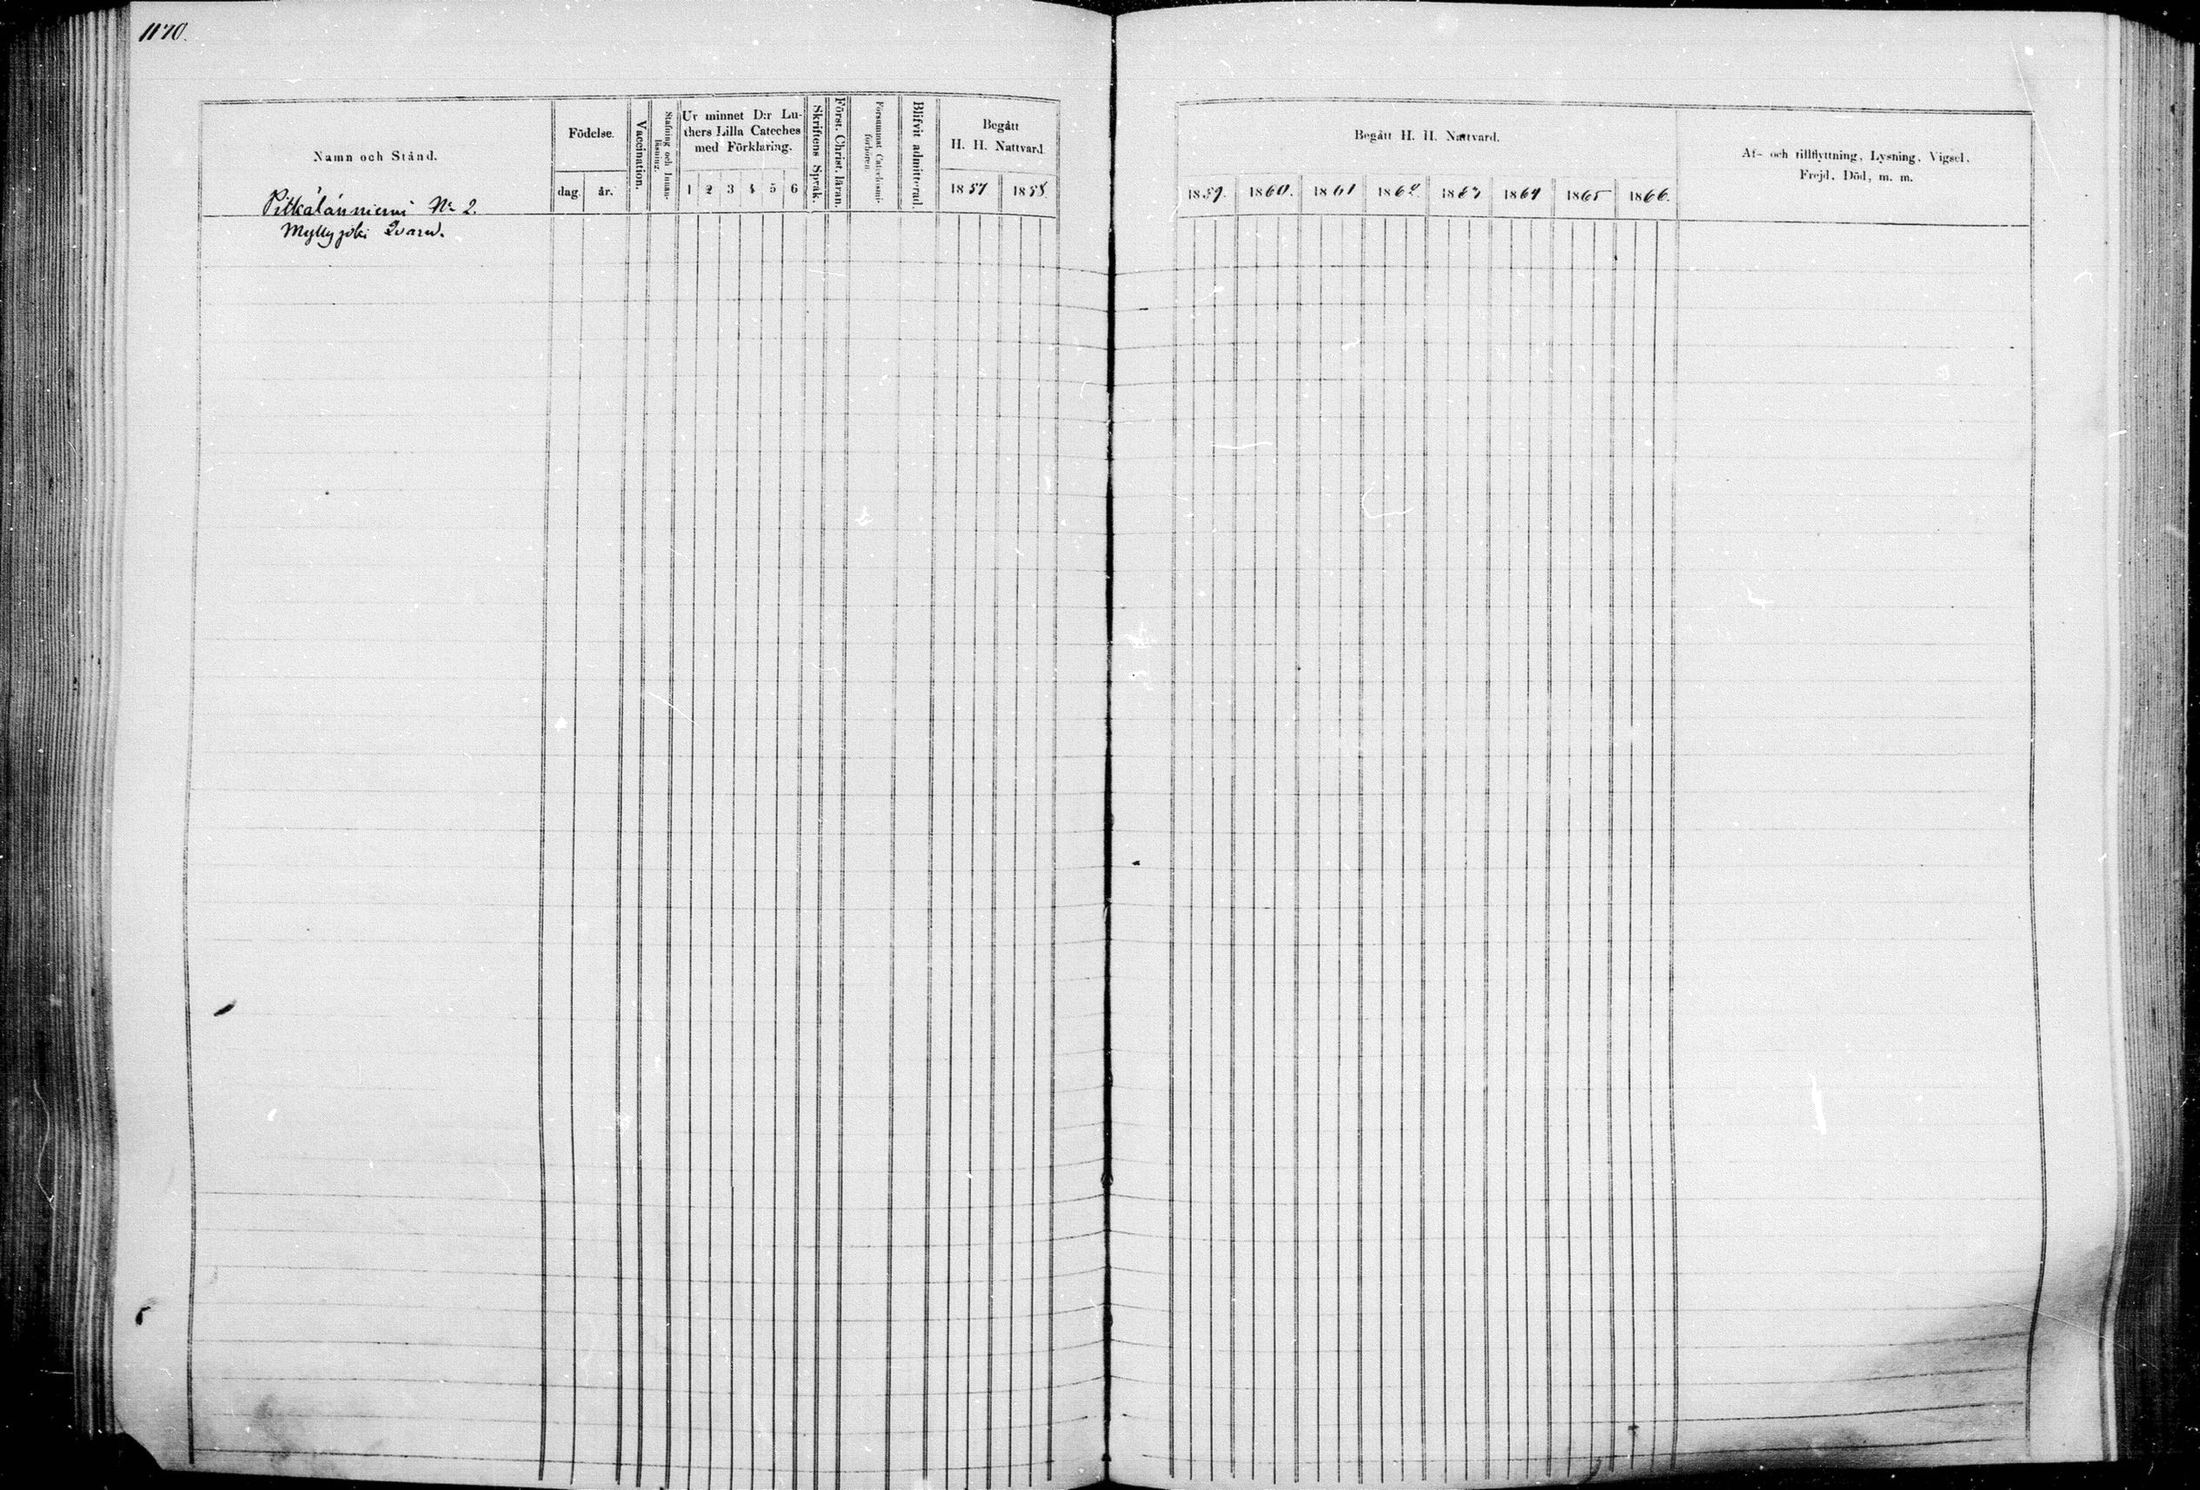 1170.
Namn och Stånd.
Födelse.
dag.
år.
Vaccination.
Stafning och Innan-
läsning.
Ur minnet D:r Lu-
thers Lilla Cateches
med Förklaring.
1 2 3 4 5 6
Skriftens Språk.
Först. Christ. läran.
Försummat Catechismi-
förhören.
Blifvit admitterad.
Begått
H. H. Nattvard
1857 1858
Pitkälänniemi No 2.
Myllyjoki Qvarn.
Begått H. H. Nattvard.
1859. 1860. 1861 1862. 1863 1864 1865 1866.
Af- och tillflyttning, Lysning, Vigsel,
Frejd, Död, m. m.